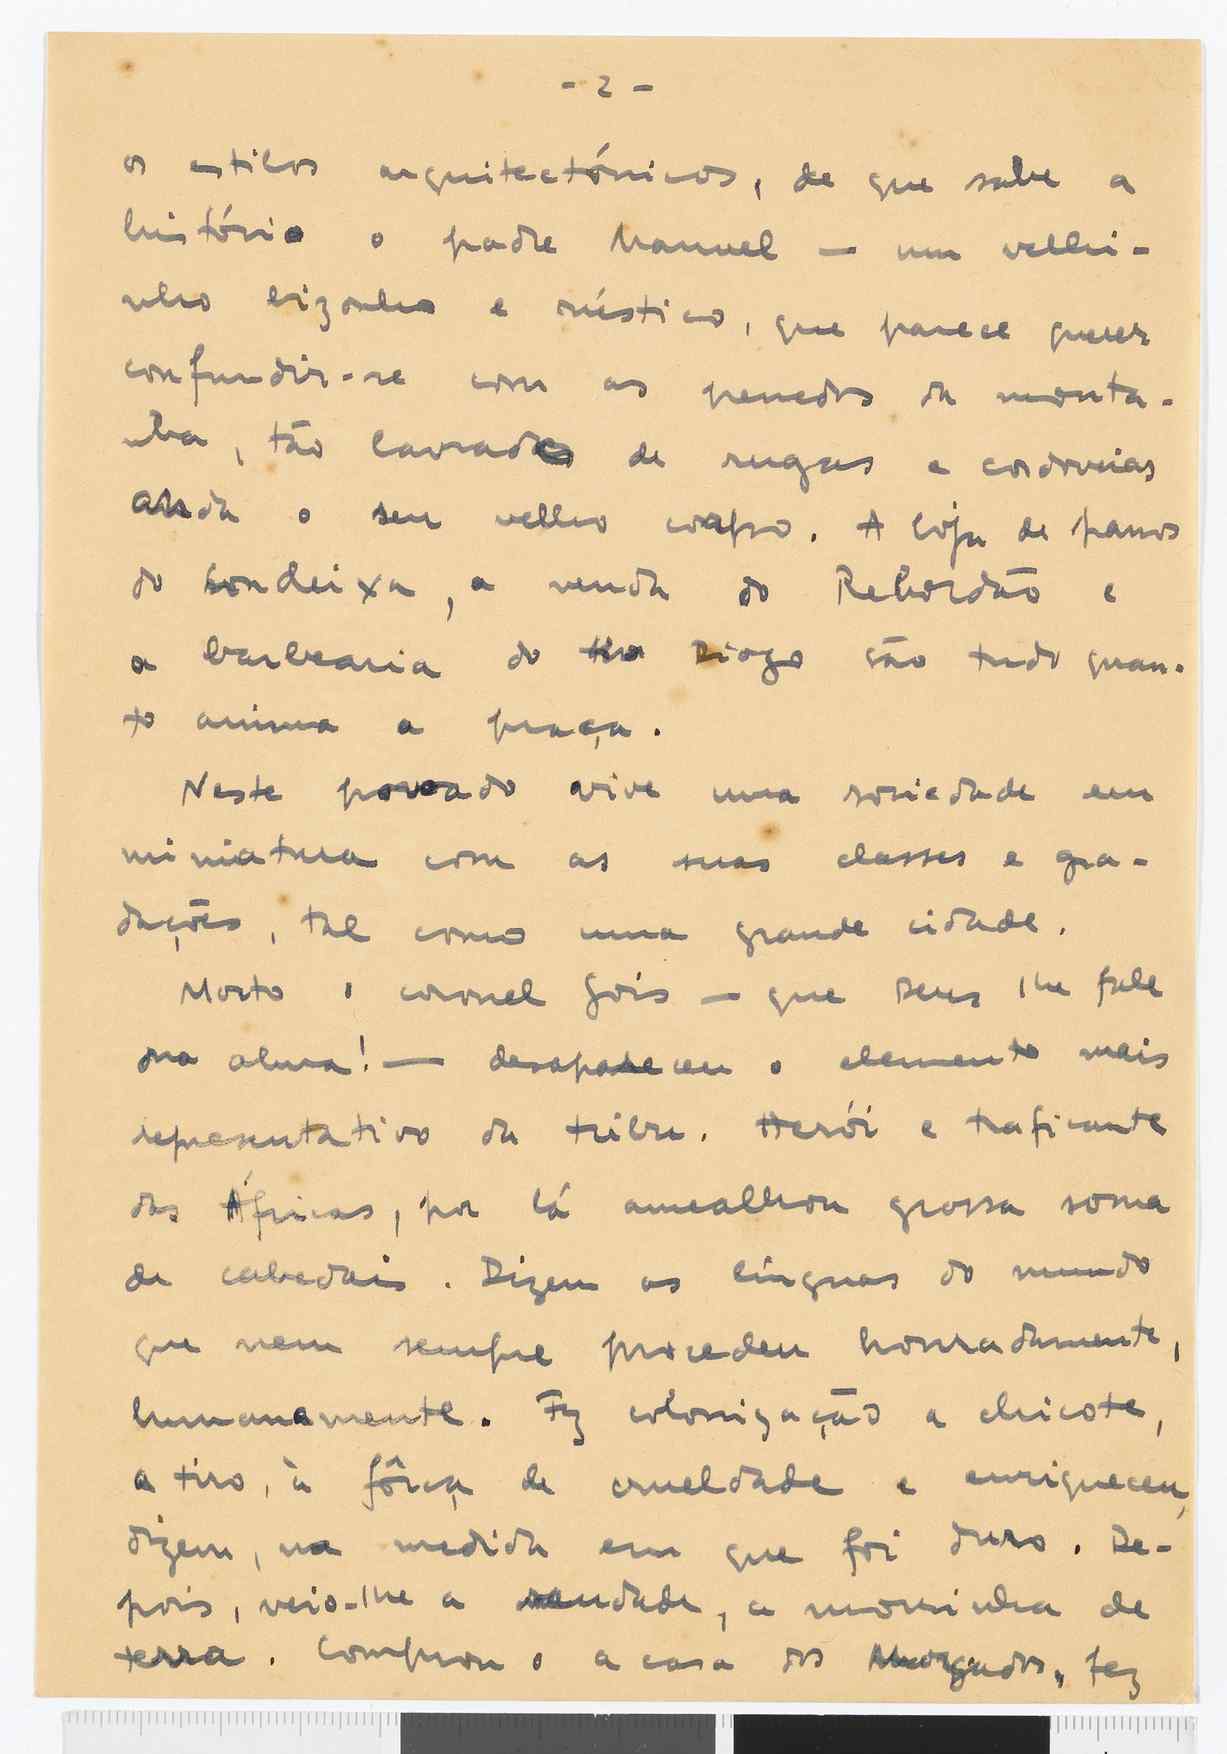 - 2 -
os estilos arquitectónicos, de que sabe a
história o padre Manuel — um velhi-
nho bizonho e rústico, que parece querer
confundir-se com os penedos da monta-
nha, tão lavrado de rugas e cordoveias
anda o seu velho corpo. A loja de panos
do Condeixa, a venda do Rebordão e
a barbearia do Diogo são tudo quan-
to anima a praça.
Neste povoado vive uma sociedade em
miniatura com as suas classes e gra-
dações, tal como uma grande cidade.
Morto o coronel Góis — que Deus lhe fale
na alma! — desapareceu o elemento mais
representativo da tribu. Herói e traficante
das Áfricas, por lá amealhou grossa soma
de cabedais. Dizem as línguas do mundo
que nem sempre procedeu honradamente,
humanamente. Fez colonização a chicote,
a tiro, à fôrça de crueldade e enriqueceu,
dizem, na medida em que foi duro. De-
pois, veio-lhe a saudade, a morrinha de
terra. Comprou a casa dos Morgados, fez